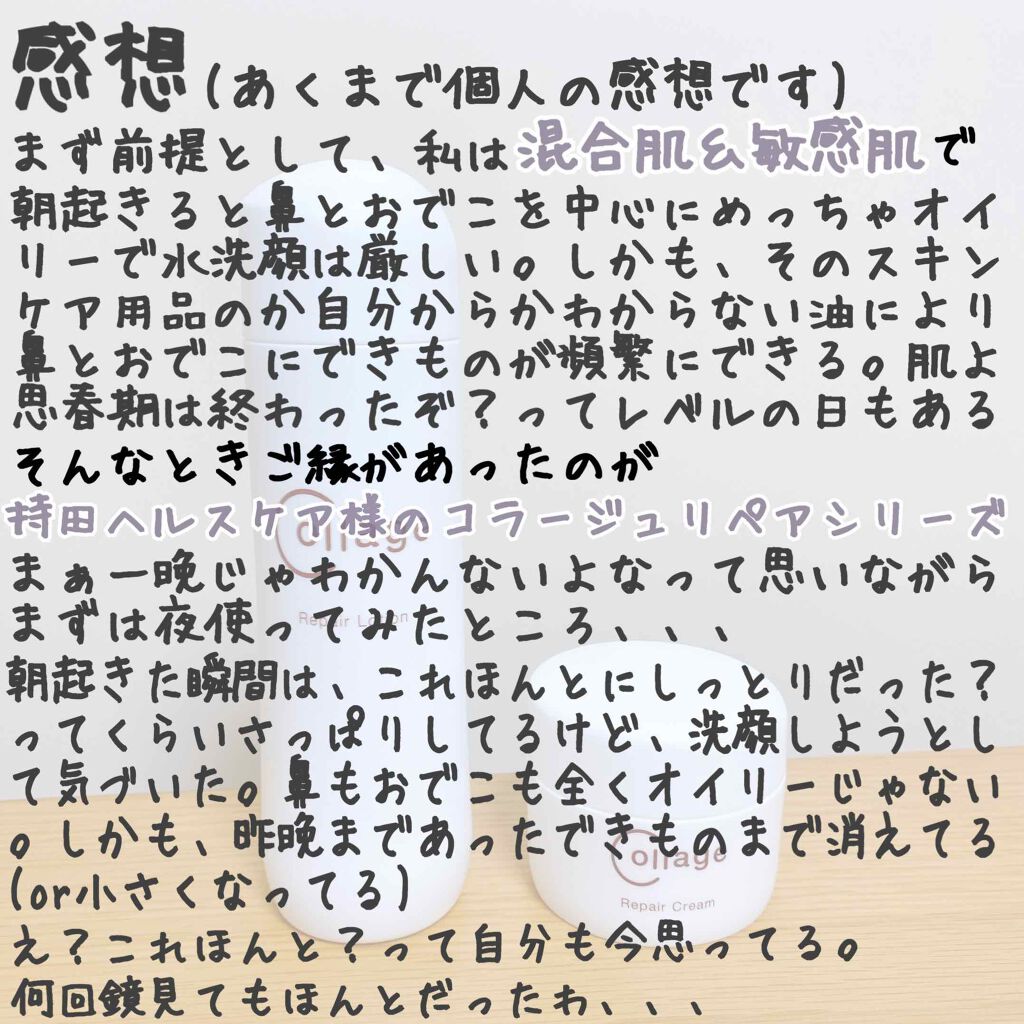 感想(あくまで個人の感想です)
まず前提として、私は混合肌&敏感肌で
朝起きると鼻とおでこを中心にめっちゃオイ
リーで水洗顔は厳しい。しかも、そのスキン
ケア用品のか自分からかわからない油により
鼻とおでこにできものが頻繁にできる。肌よ
思春期は終わったぞ?ってレベルの日もある
そんなときご縁があったのが
持田ヘルスケア様のコラージュリペアシリーズ
まぁ一晩じゃわかんないよなって思いながら
まずは夜使ってみたところ、、、
朝起きた瞬間は、これほんとにしっとりだった?
ってくらいさっぱりしてるけど、洗顔しようとし
て気づいた。鼻もおでこも全くオイリーじゃない
。しかも、昨晩まであったできものまで消えてる
(or小さくなってる)
え?これほんと?って自分も今思ってる。
何回鏡見てもほんとだったわ、、、
Collage
Repair Lotion
Collage
Repair Cream